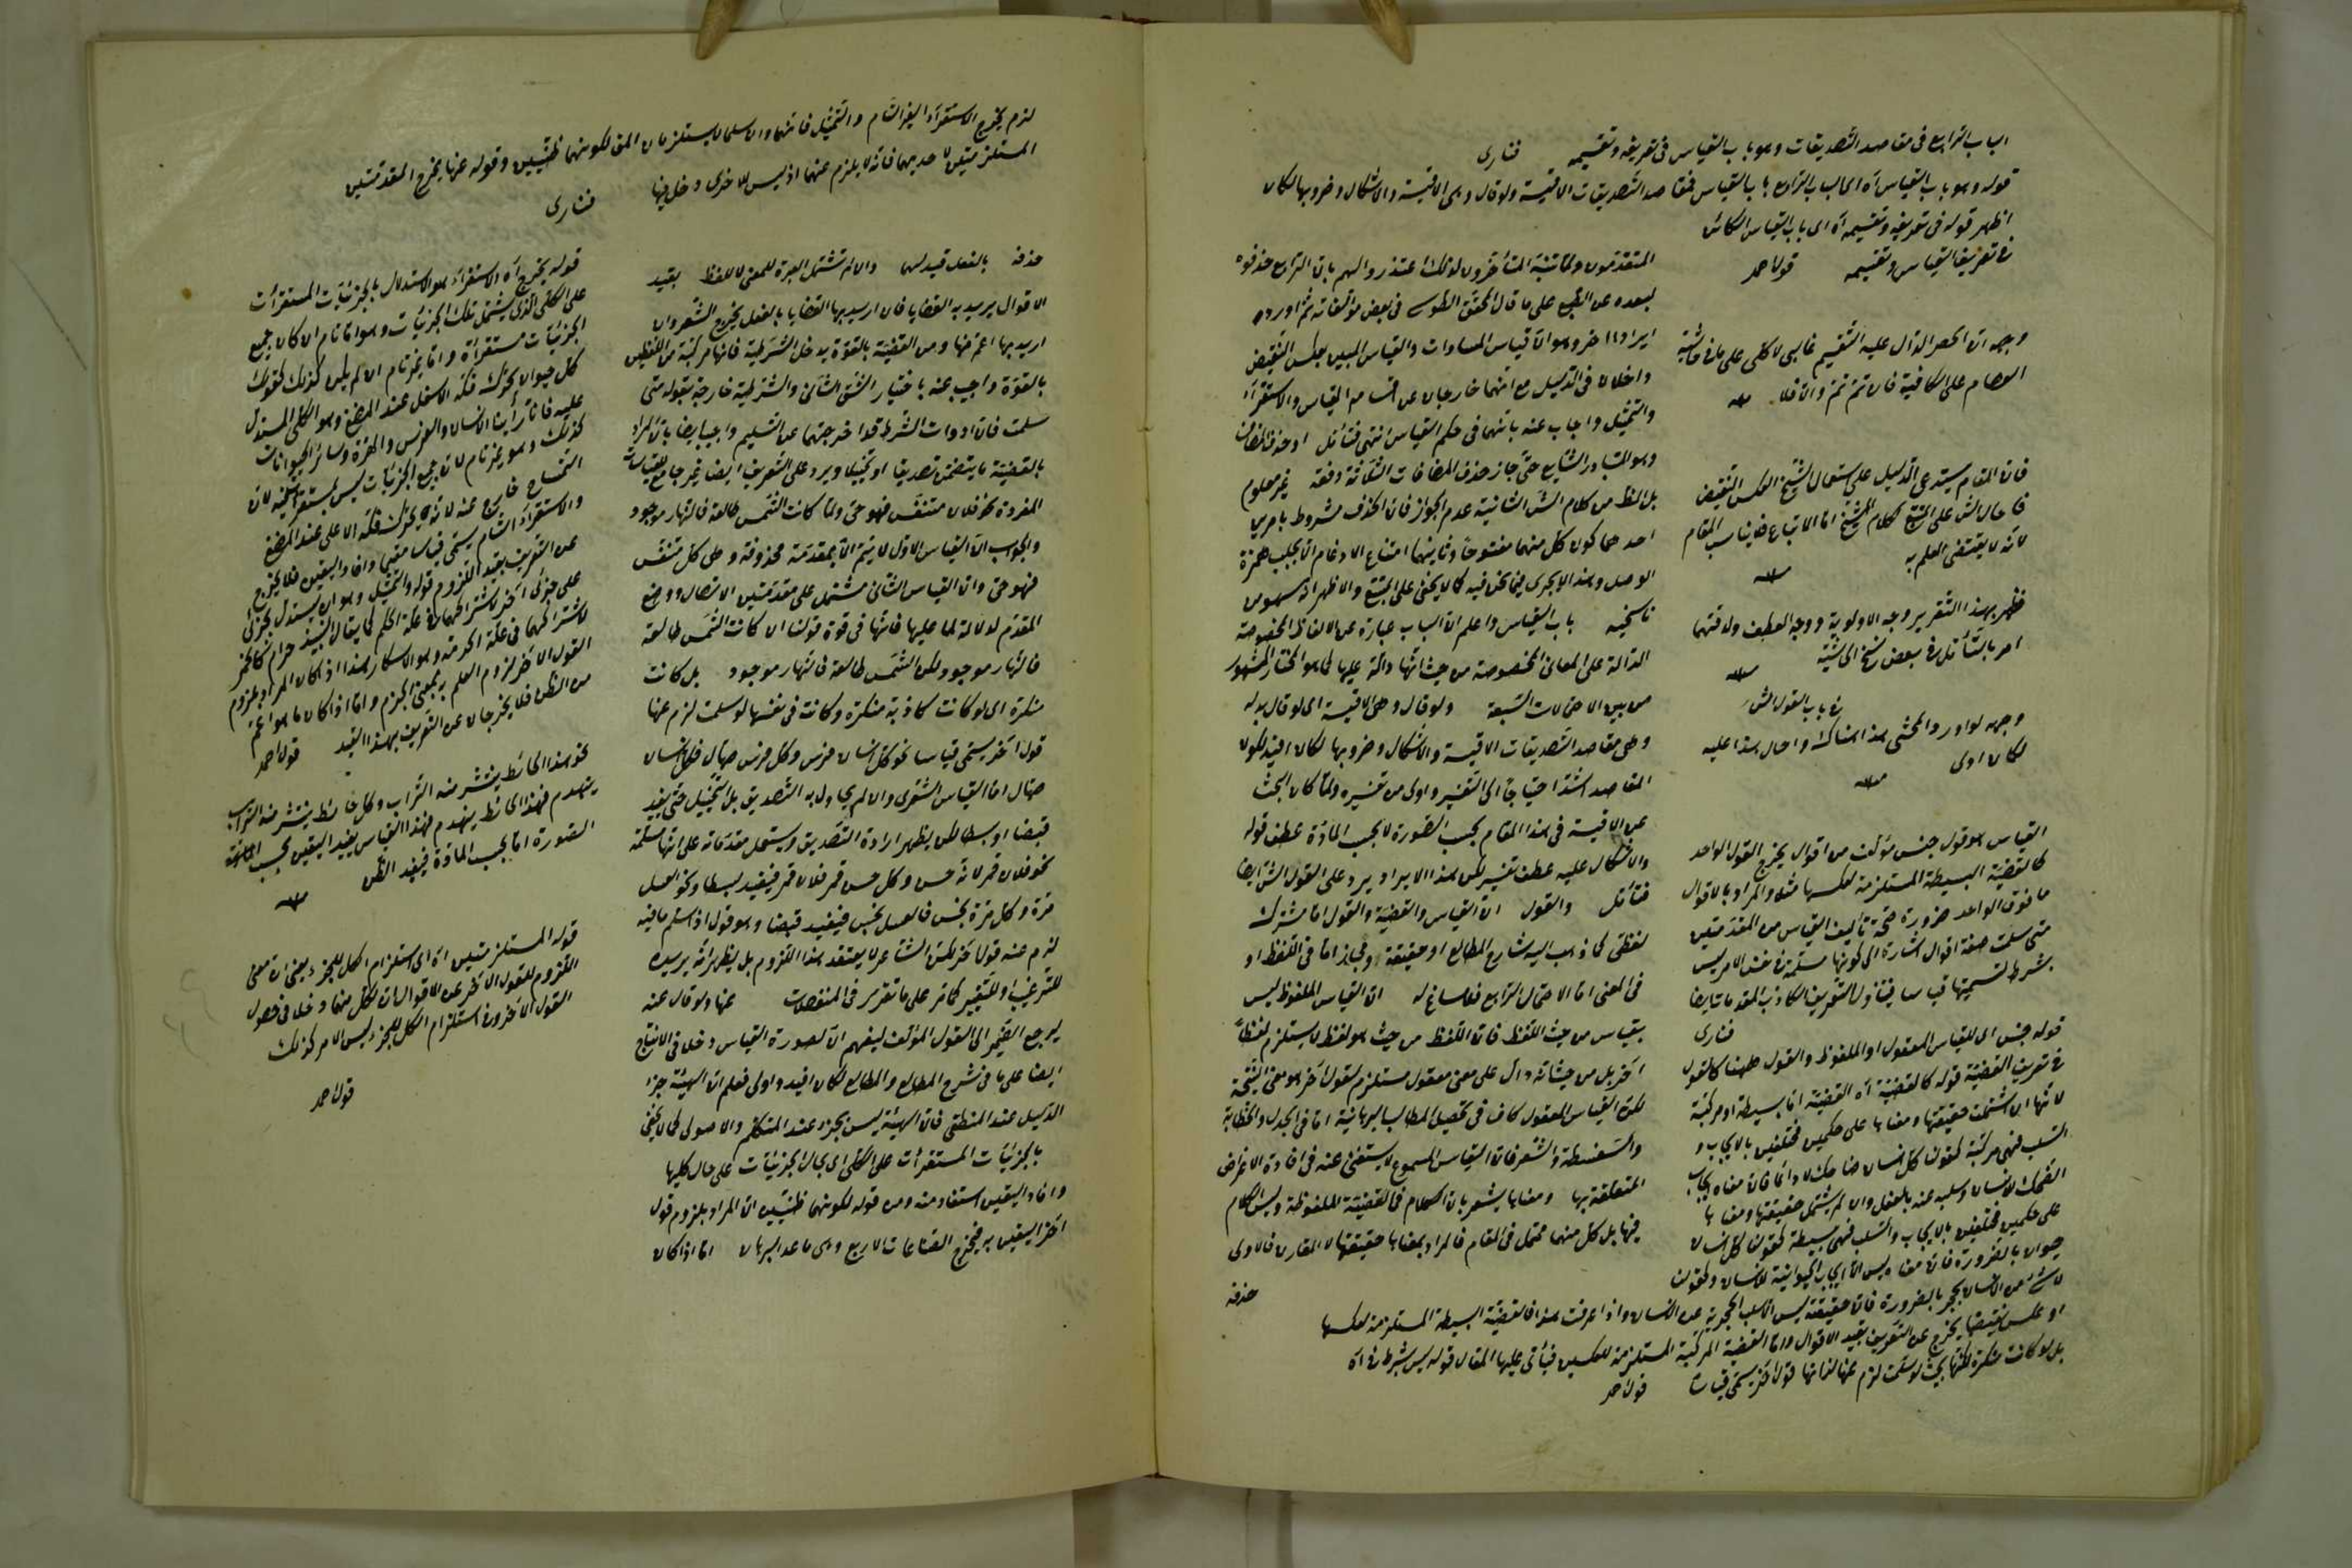 الباب الرابع فى مقاصد التصديقات وهو باب القياس فى تعريفه وتقسيمه فنارى
قوله وهو باب القياس اه اى الباب الرابع باب القياس فمقاصد التصديقات الاقيسة ولو قال وهى الاقيسة والاشكال وضروبها لكان
اظهر قوله فى تعريفه وتقسيمه اه اى باب القياس الكائن
فى تعريف القياس وتقسيمه قول احمد
وجهه ان الحصر الدال عليه التقسيم غالبى لا كلى على ما فى حاشية
العصام على الكافية فان تم تم والا فلا منه
فان المقام يستدعى الدليل على استعمال الشيخ العكس النقيض
لانه لا يقتضى العلم به منه
ظهر بهذا التقرير وجه الاولوية ووجه العطف ولدقتهما
امر بالتأمل فى بعض نسخ الحاشية منه
فى باب القول الش
وجهه لو اورد المحشى هذا هناك واحال هذا عليه
لكان اولى منه
القياس هو قول جنس مؤلف من اقوال يخرج القول الواحد
كالقضية البسيطة المستلزمة لعكسها مثلا والمراد بالاقوال
ما فوق الواحد ضرورة صحة تأليف القياس من المقدمتين
متى سلمت صفة اقوال اشارة الى كونها مسلمة فى نفس الامر ليس
بشرط لتسميتها قياسا فيتناول التعريف الكاذب المقدمات ايضا
فنارى
قوله جنس اى للقياس المعقول او الملفوظ والقول ههنا كالقول
فى تعريف القضية قوله كالقضية اه القضية اما بسيطة او مركبة
لانها ان اشتملت حقيقتها ومعناها على حكمين مختلفين بالايجاب و
السلب فهى مركبة كقولنا كل انسان ضاحك لا دائما فان معناه ايجاب
الضحك للانسان وسلبه عنه بالفعل وان لم يشتمل حقيقتها ومعناها
على حكمين مختلفين بالايجاب والسلب فهى بسيطة كقولنا كل انسان
حيوان بالضرورة فان معناه ليس الا ايجاب الحيوانية للانسان وكقولنا
لا شئ من الانسان بحجر بالضرورة فان حقيقته ليس الا سلب الحجرية عن الانسان واذا عرفت هذا فالقضية البسيطة المستلزمة لعكسها
او عكس نقيضها يخرج عن التعريف بقيد الاقوال واما القضية المركبة المستلزمة للعكسين فيأتى عليها المقال قوله ليس بشرط فى اه
بل لو كانت منكرة لكنها بحيث لو سلمت لزم عنها لذاتها قول اخر يسمى قياسا قول احمد
المتقدمون ولما تنبه المتأخرون لذلك اعتذروا لهم بان الرابع حذفوه
لبعده عن الطبع على ما قال المحقق الطوسى فى بعض مؤلفاته ثم اورده
ايرادا اخر وهو ان قياس المساوات والقياس المبين بعكس النقيض
داخلان فى الدليل مع انهما خارجان عن اقسام القياس والاستقراء
والتمثيل واجاب عنه بانهما فى حكم القياس انتهى فتأمل
وهو المتبادر الشايع حتى جاز حذف المضافات الثلاثة دفعة غير معلوم
احدهما كون كل منهما مفتوحا وثانيهما امتناع الادغام الا بجلب همزة
الوصل وهذا لا يجرى فيما نحن فيه كما لا يخفى على المتتبع والاظهر انه سهو من
ناسخيه باب القياس واعلم ان الباب عبارة عن الالفاظ المخصوصة
الدالة على المعانى المخصوصة من حيث انها دالة عليها كما هو المختار المشهور
من بين الاحتمالات السبعة ولو قال وهى الاقيسة اى لو قال بدله
وهى مقاصد التصديقات الاقيسة والاشكال وضروبها لكان افيد لكون
المقاصد اشد احتياجا الى التفسير واولى من تفسيره ولما كان البحث
عن الاقيسة فى هذا المقام بحسب الصورة لا بحسب المادة عطف قوله
والاشكال عليه عطف تفسير لكن هذا الايراد يرد على القول الش ايضا
فتأمل والقول ان القياس والقضية والقول اما مشترك
لفظى كما ذهب اليه شارح المطالع او حقيقة ومجاز اما فى اللفظ او
فى المعنى اما الاحتمال الرابع فلا مساغ له ان القياس الملفوظ ليس
بقياس من حيث اللفظ فان اللفظ من حيث هو لفظ لا يستلزم لفظا
اخر بل من حيث انه دال على معنى معقول مستلزم لقول اخر هو معنى النتيجة
لكن القياس المعقول كاف فى تحصيل المطالب البرهانية اما فى الجدل والخطابة
والسفسطة والشعر فان القياس المسموع لا يستغنى عنه فى افادة الاغراض
المتعلقة بها ومعناها يشعر بان الكلام فى القضية الملفوظة وليس الكلام
فيها بل كل منهما محتمل فى المقام فالمراد بمعناها حقيقتها لا المقارن فالاولى
حذفه
لزم يخرج الاستقراء الغير التام والتمثيل فانهما وان سلما لا يستلزمان المق لكونهما ظنيين وقوله عنها يخرج المقدمتين
المستلزمتين لاحديهما فانه لا يلزم عنهما اذ ليس للاخرى دخل فيها
فنارى
حذفه بالفعل قيد لهما وان لم تشتمل العبرة للمعنى لا للفظ بقيد
الاقوال يريد به القضايا فان اريد بها القضايا بالفعل يخرج الشعر وان
اريد بها اعم منها ومن القضية بالقوة يدخل الشرطية فانها مركبة من اللفظين
بالقوة واجيب عنه باختيار الشق الثانى والشرطية خارجة بقوله متى
سلمت فان ادوات الشرط قد اخرجتهما عن التسليم واجيب ايضا بان المراد
بالقضية ما يتضمن تصديقا او تخييلا ويرد على التعريف ايضا غير جامع للقياسات
المفردة نحو فلان متنفس فهو حى ولما كانت الشمس طالعة فالنهار موجود
والجواب ان القياس الاول لا يتم الا بمقدمة محذوفة وهى كل متنفس
فهو حى وان القياس الثانى مشتمل على مقدمتين الاتصال ووضع
المقدم لدلالة لما عليها فانها فى قوة قولنا ان كانت الشمس طالعة
فالنهار موجود ولكن الشمس طالعة فالنهار موجود بل كانت
منكرة اى لو كانت كاذبة منكرة وكانت فى نفسها لو سلمت لزم عنها
قول اخر يسمى قياسا نحو كل انسان فرس وكل فرس صهال فكل انسان
صهال اما القياس الشعرى وان لم يحاول به التصديق بل التخييل حتى يفيد
قبضا او بسطا لكن يظهر ارادة التصديق ويستعمل مقدماته على انها مسلمة
نحو فلان قمر لانه حسن وكل حسن قمر فلان قمر فيفيد بسطا ونحو العسل
مرة وكل مرة نجس فالعسل نجس فيفيد قبضا وهو قول اذا سلم ما فيه
لزم عنه قول اخر لكن الشاعر لا يعتقد هذا اللزوم بل يظهر انه يريده
للترغيب او للتنفير كما مر على ما تقرر فى المفصلات عنها ولو قال عنه
ليرجع الضمير الى القول المؤلف ليفهم ان لصورة القياس دخلا فى الانتاج
ايضا على ما فى شرح المطالع والمطالع لكان افيد واولى فعلم ان الهيئة جزء
الدليل عند المنطقى فان الهيئة ليس بجزء عند المتكلم والاصولى كما لا يخفى
بالجزئيات المستقرأت على الكلى اى بحال الجزئيات على حال كليها
وافاد اليقين استفاد منه ومن قوله لكونهما ظنيين ان المراد بلزوم قول
اخر اليقين به فيخرج الصناعات الاربع وهى ما عدا البرهان اما اذا كان
قوله يخرج اه الاستقراء هو الاستدلال بالجزئيات المستقرأت
على الكلى الذى يشتمل تلك الجزئيات وهو اما تام ان كان جميع
الجزئيات مستقرأة واما غير تام ان لم يكن كذلك كقولك
كل حيوان يحرك فكه الاسفل عند المضغ وهو الكلى المستدل
عليه فانا رأينا الانسان والفرس والهرة وسائر الحيوانات
كذلك وهو غير تام لان جميع الجزئيات ليس بمستقرأ فيه لان
التمساح خارج عنه لانه يحرك فكه الاعلى عند المضغ
والاستقراء التام يسمى قياسا مقسما وافاد اليقين فلا يخرج
عن التعريف بقيد اللزوم قوله والتمثيل وهو ان يستدل بجزئى
على جزئى اخر لاشتراكهما فى علة الحكم كما يقال النبيذ حرام كالخمر
لاشتراكهما فى علة الحرمة وهو الاسكار هذا اذا كان المراد بلزوم
القول الاخر لزوم العلم به بمعنى الجزم واما اذا كان ما هو اعم
من الظن فلا يخرجان عن التعريف بهذا القيد قول احمد
نحو هذا الحائط ينتشر منه التراب وكل حائط ينتشر منه التراب
ينهدم فهذا الحائط ينهدم فهذا القياس يفيد اليقين بحسب
الصورة اما بحسب المادة فيفيد الظن منه
قوله المستلزمتين اه اى استلزام الكل للجزء يعنى ان معنى
اللزوم للقول الاخر عن الاقوال ان لكل منهما دخلا فى حصول
القول الاخر وفى استلزام الكل للجزء ليس الامر كذلك
قول احمد